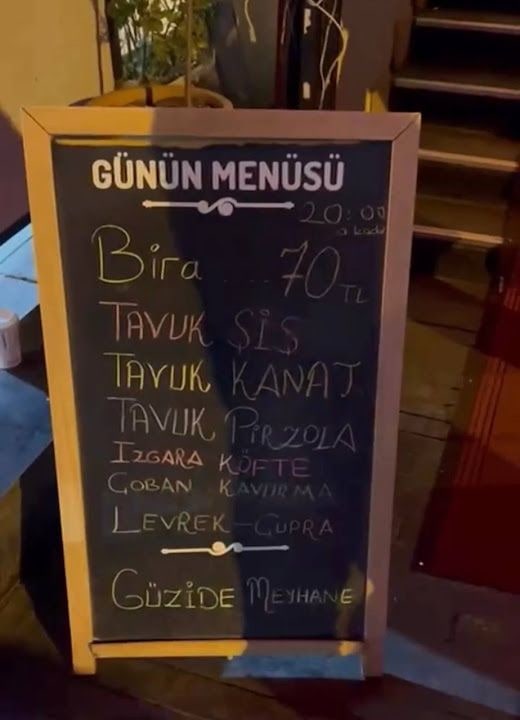 GÜNÜN MENÜSÜ
20:00
a kadar
Bira .... 70 TL
TAVUK ŞİŞ
TAVUK KANAT
TAVUK PİRZOLA
IZGARA KÖFTE
ÇOBAN KAVURMA
LEVREK-ÇUPRA
GÜZİDE MEYHANE